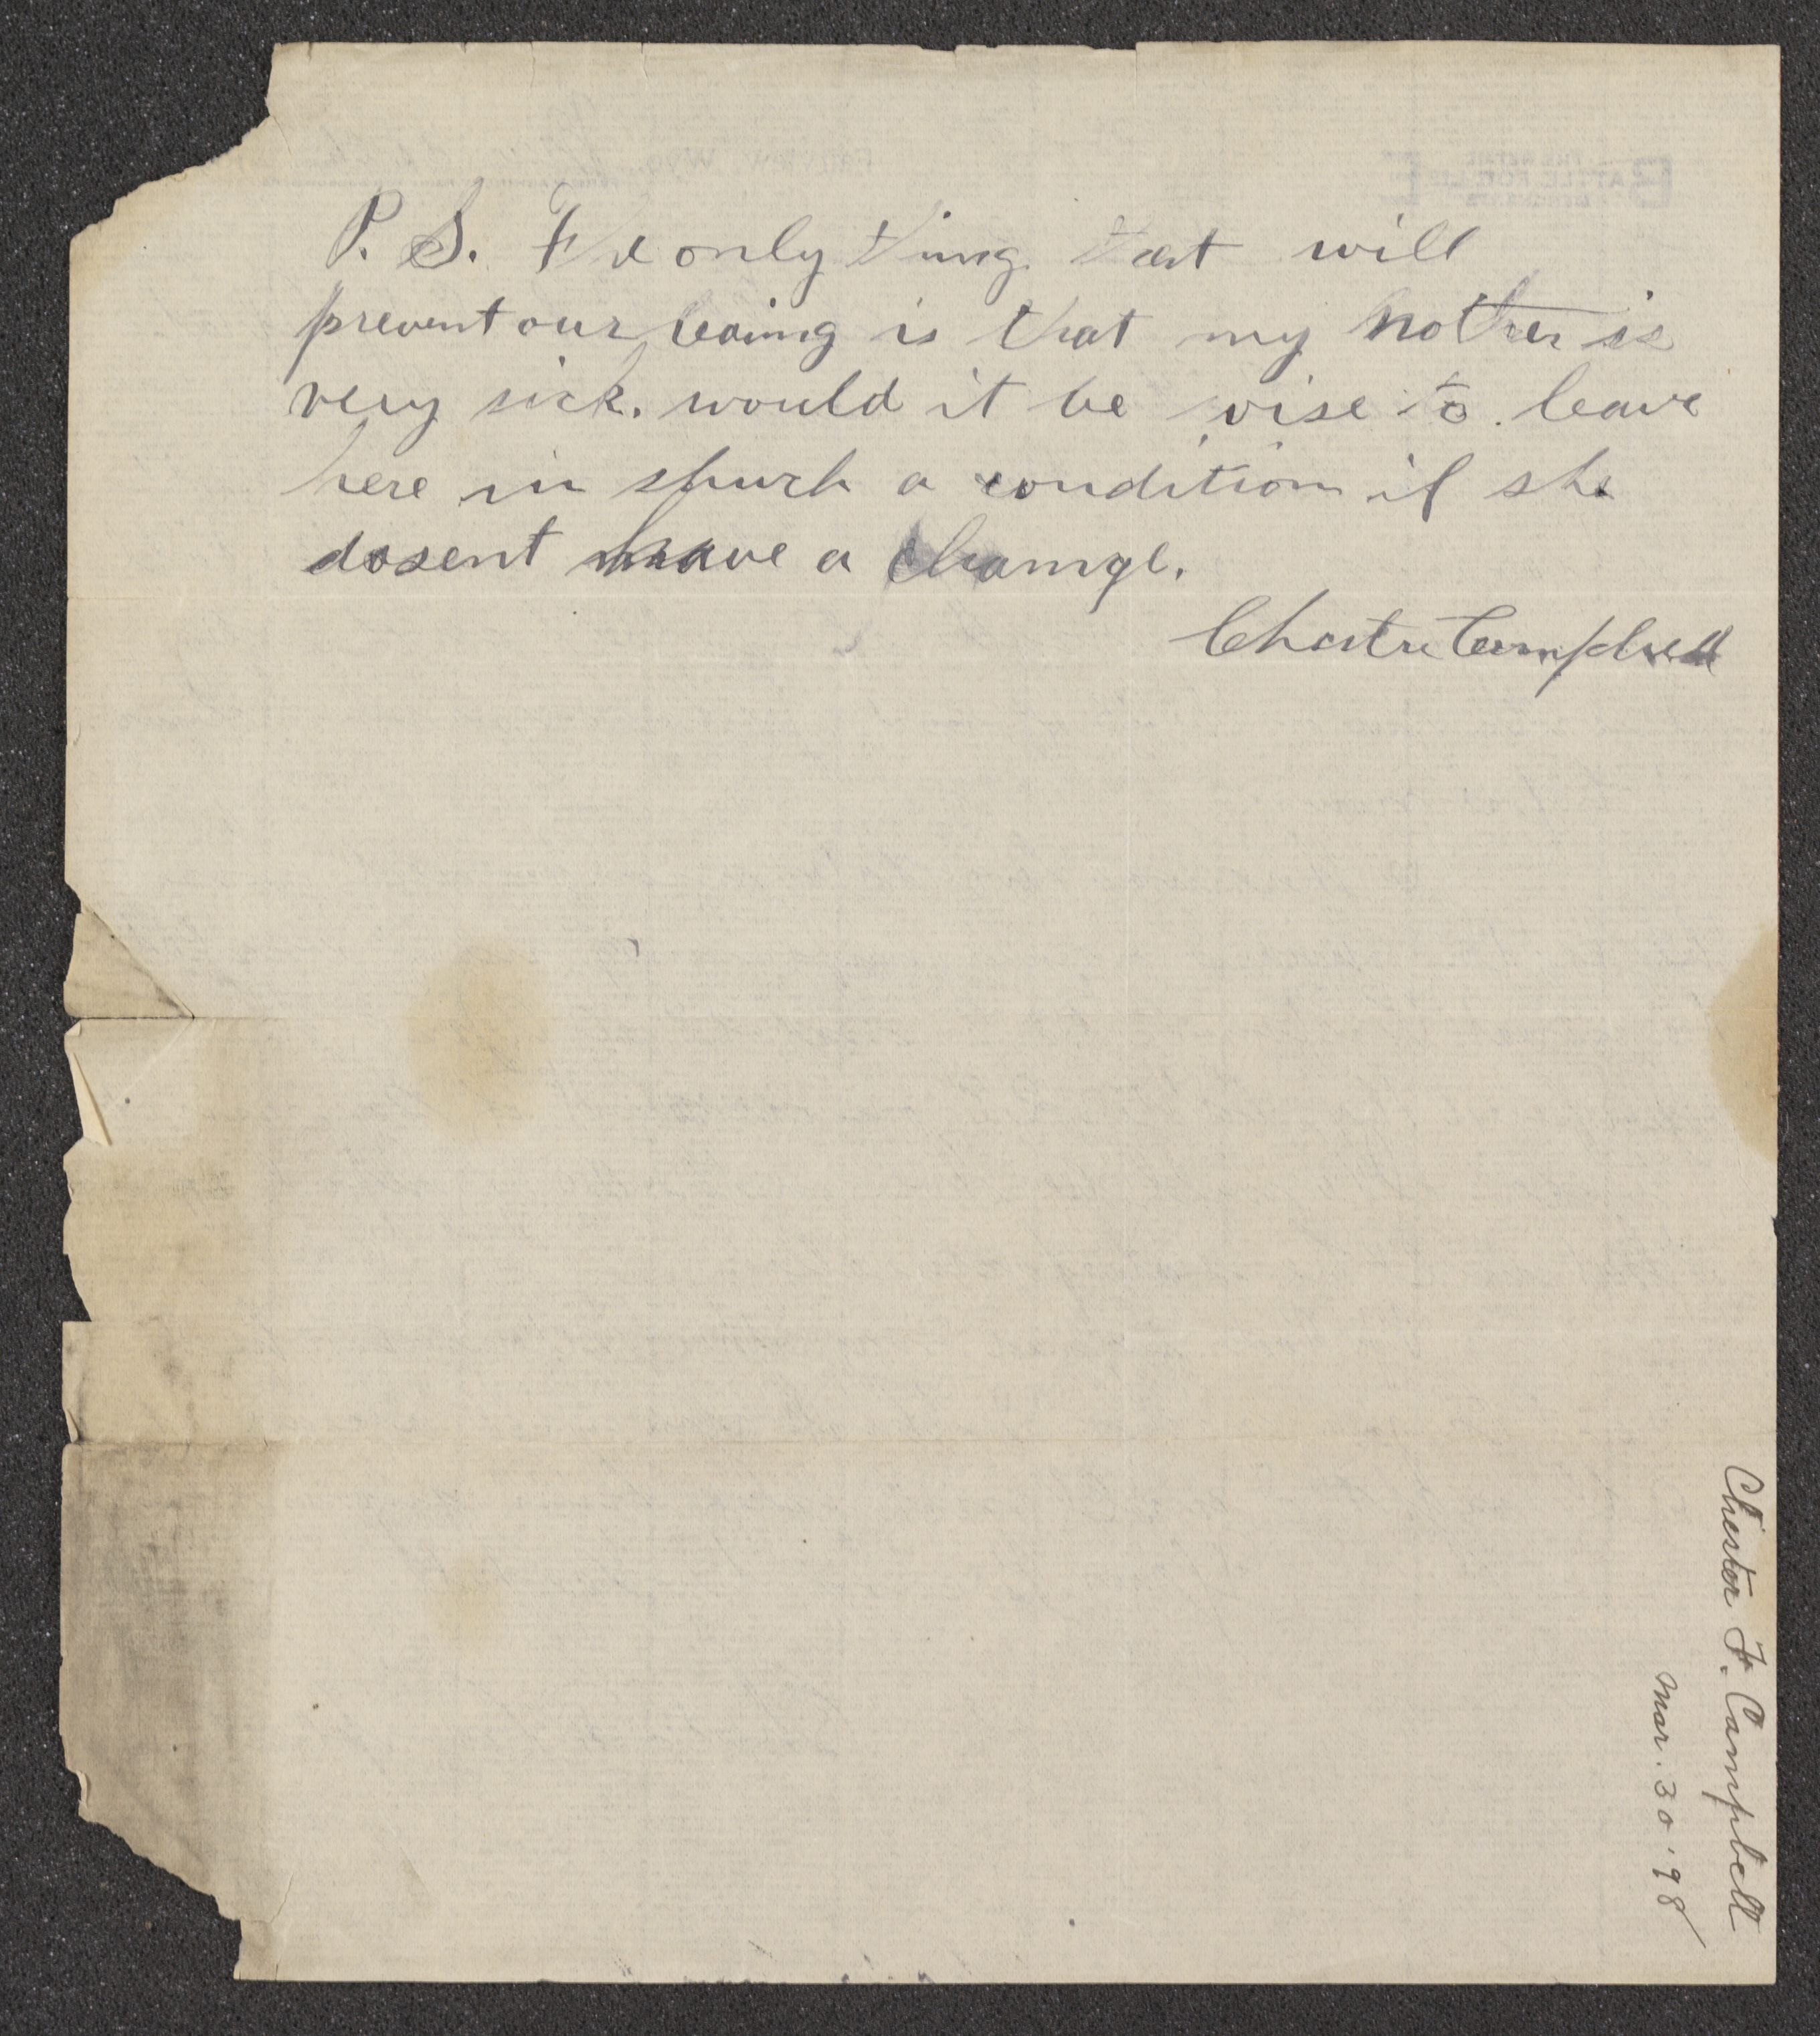 P. S. The only thing that will
prevent our leaving is that my Mother is
very sick. would it be wise to leave
here in shuch a condition if she
dosent have a change.
Chester Campbell
Chester F. Campbell
Mar. 30 '98